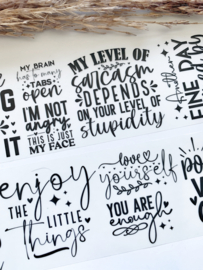 G
IT
MY BRAIN
has too many
TABS
open
I'M NOT
angry,
THIS IS JUST
MY FACE
MY LEVEL OF
sarcasm
DEPENDS
ON YOUR LEVEL OF
stupidity
Another
FINE DAY
by
enjoy
THE
LITTLE
Things
love
yourself
YOU ARE
enough